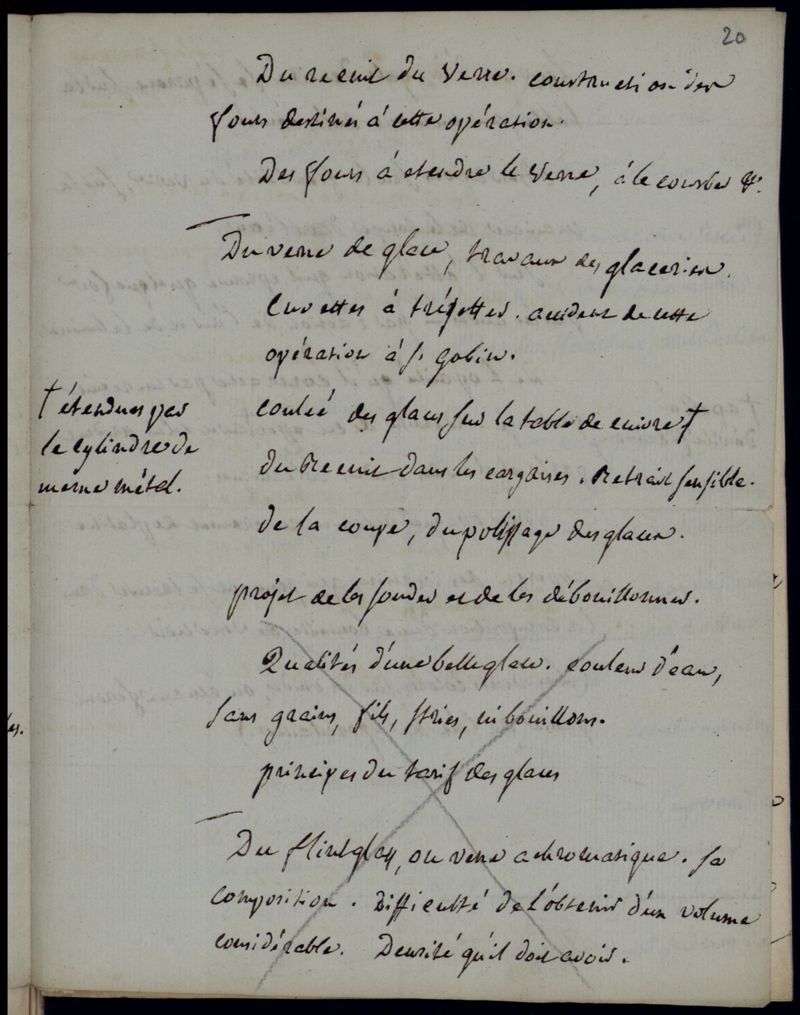 20
Du recuit du Verre. construction des
fours destinés à cette opération.
Des fours à etendre le verre, à le courber &c.
Du verre de glace, travaux des glaceries.
Cuvettes à tréjetter. accidens de cette
opération à St. gobin.
coulée des glaces sur la table de cuivre †
† étendues par
le cylindre de
meme métal.
du Recuit dans les carqaises. Retrait sensible.
de la coupe, du polissage des glaces.
projet de les souder et de les débouillonner.
Qualités d'une belle glace. couleur d'eau,
sans grains, fils, stries, ni bouillons.
principes du tarif des glaces
Du flintglass, ou verre achromatique. sa
composition. Difficulté de l'obtenir d'un volume
considérable. Densité qu'il doit avoir.